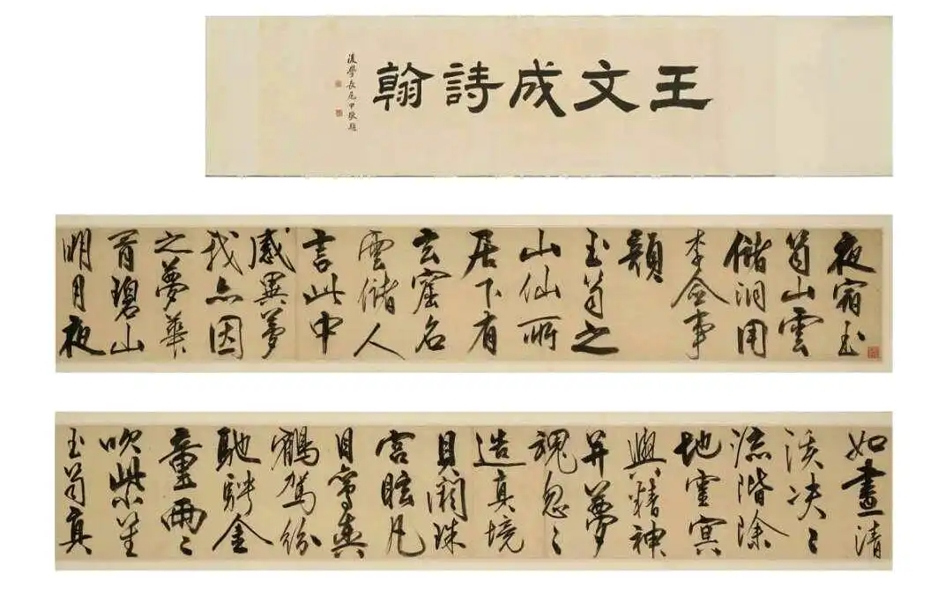 王文成詩翰
後學長尾甲敬題
夜宿玉
笥山雲
儲洞用
李僉事
韻
玉笥之
山仙所
居下有
玄窟名
雲儲人
言此中
感異夢
我亦因
之夢華
胥碧山
明月夜
如晝清
溪决〻
流階除
地靈冥
與精神
并夢
魂忽〻
造真境
貝闕珠
宮眩凡
目鸞輿
鶴駕紛
馳騁金
童兩〻
吹紫笙
玉笥真